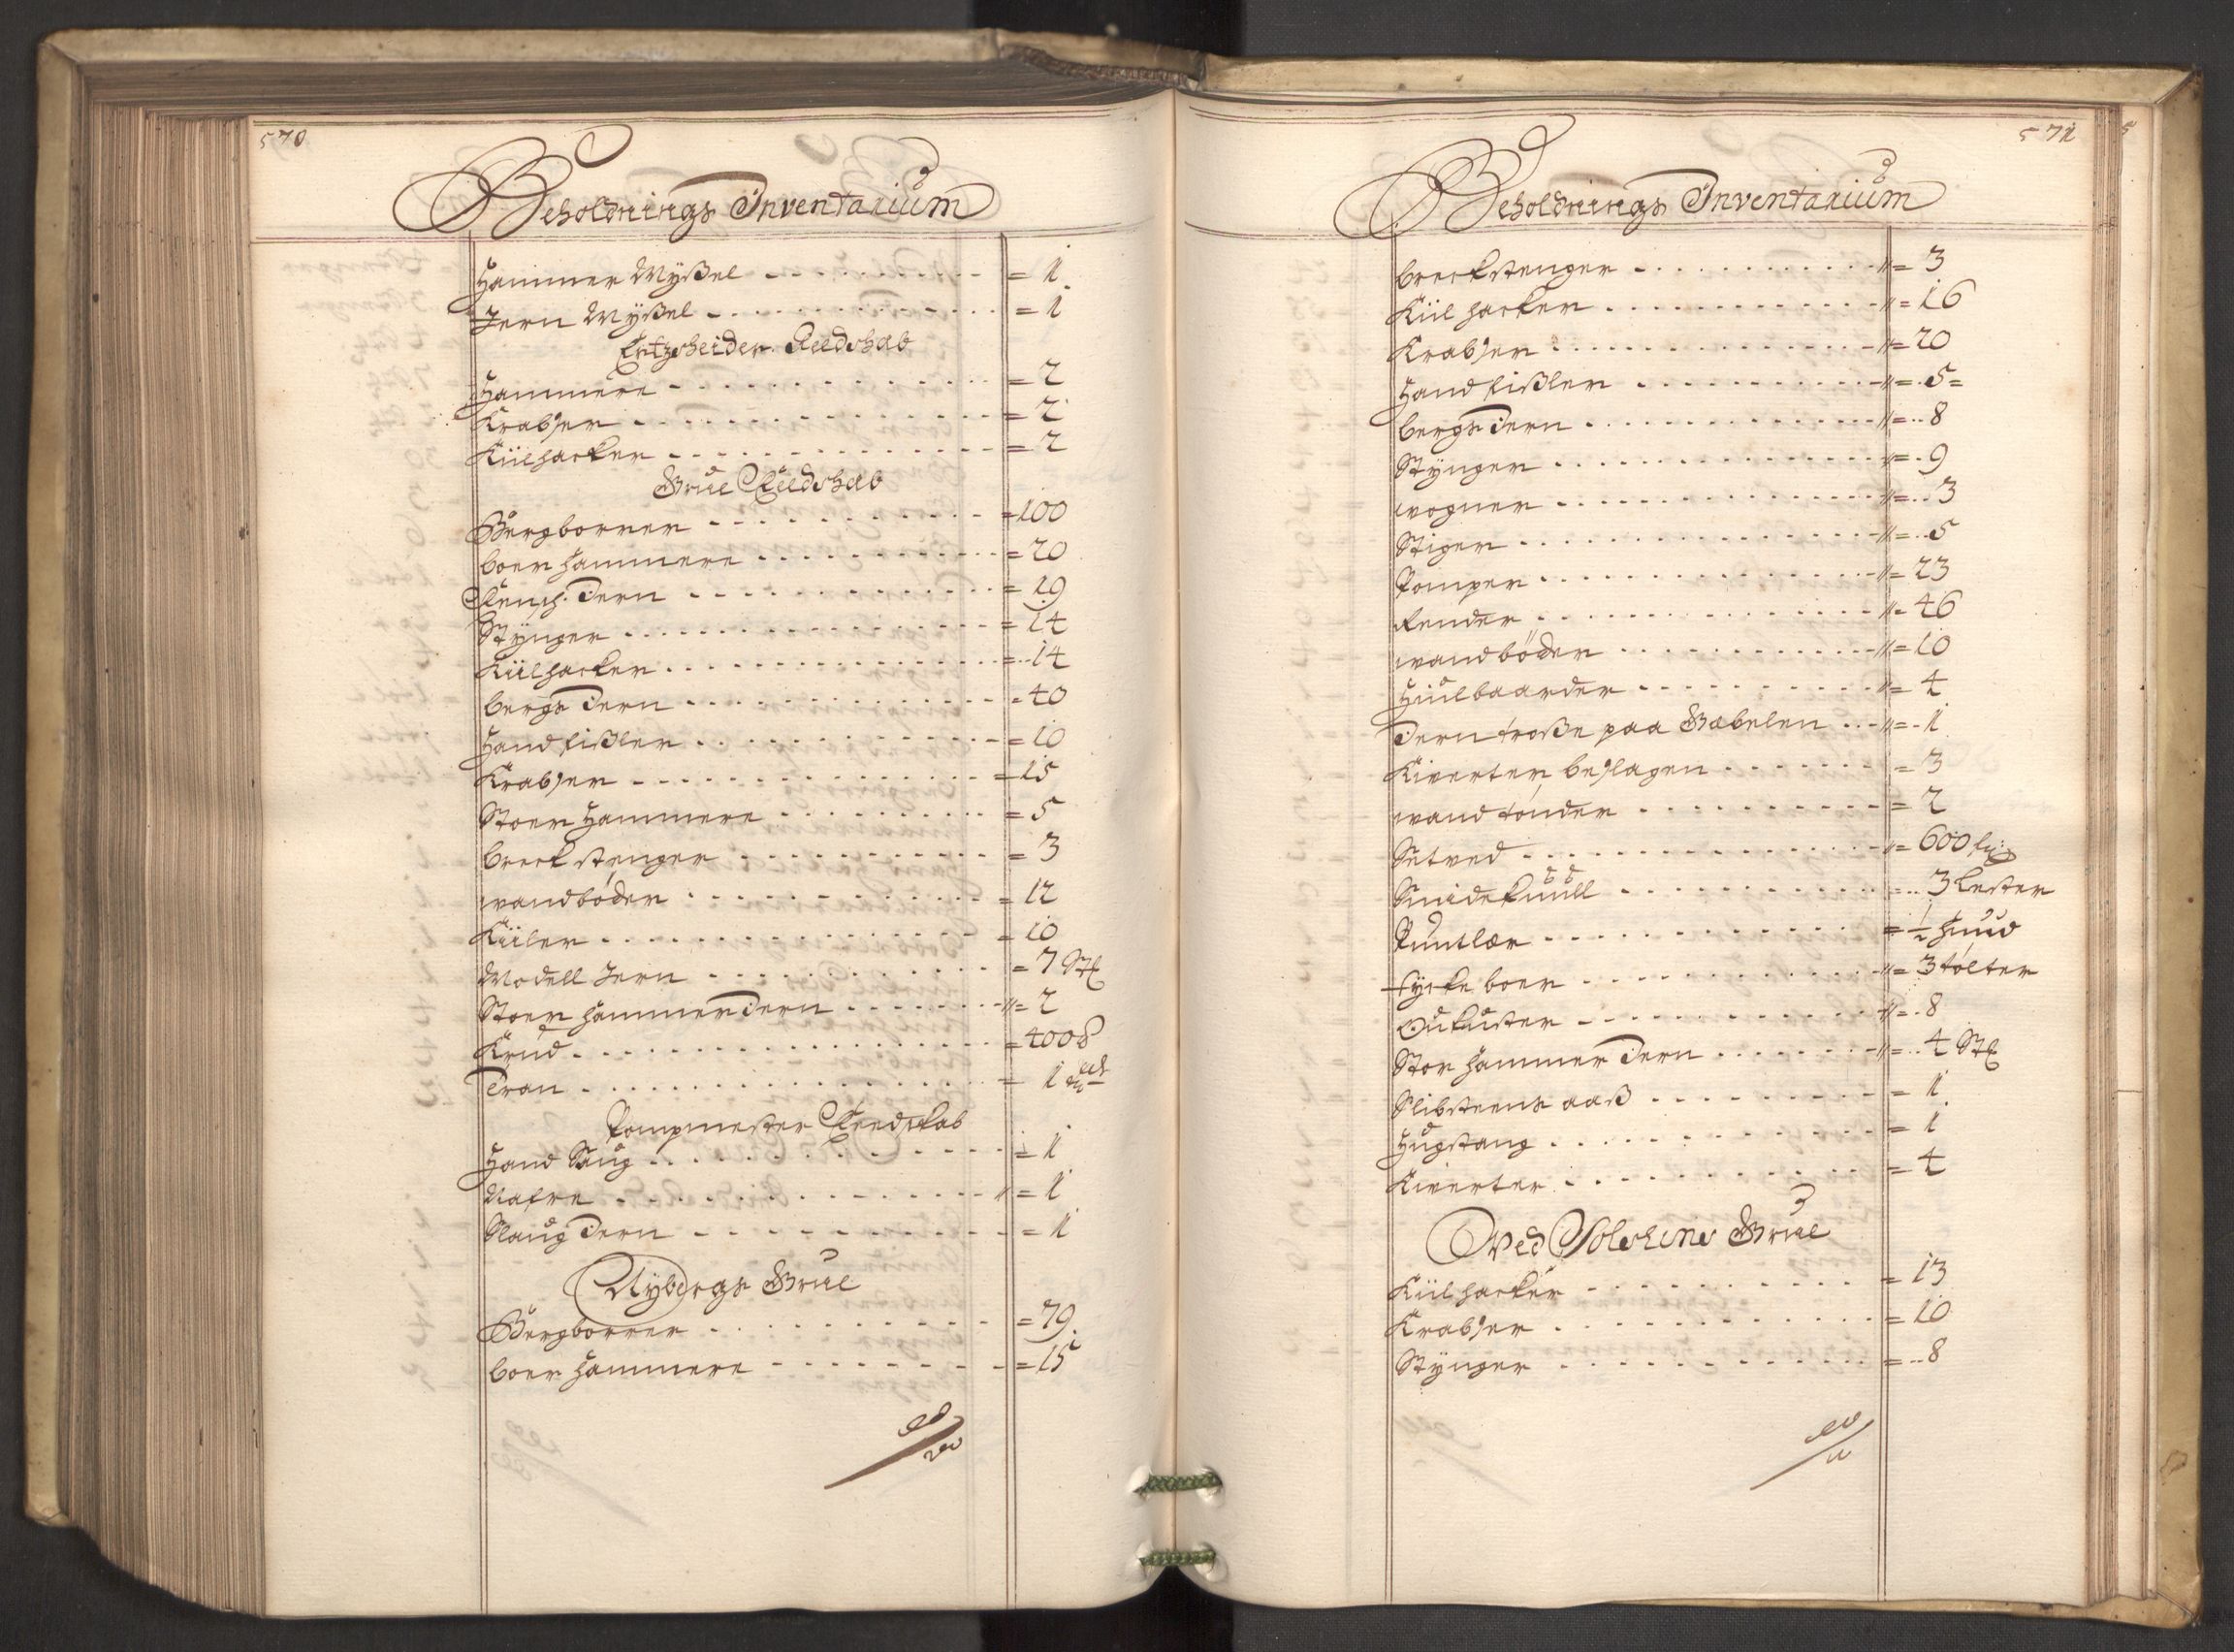 570
Beholdnings Inventarium
Hammer Wyßel = 1
Jern Wyßel = 1
Ertzsheider Redshab
Hammere = 2
Krabser = 2
Kiilhacker = 2
Grue Redshab
Bergborrer = 100
boer hammere = 20
Rensh Jern = 19
Stÿnger = 14
Kiilhacker = 14
bergs Jern = 40
Handfißler = 10
Krabser = 15
Stoer Hammere = 5
breckstenger = 3
wandböder = 12
Kiiler = 10
Modell Jern = 7 Stk
Stoer hammer Jern = 2
Krud = 400
Tran = 1
Pompmester Reedskab
Hand Saug = 1
Nafre = 1
Slaug Jern = 1
Nybergs Grue
Bergborrer = 79
boer hammere = 15
571
Beholdnings Inventarium
breckstenger = 3
Kiil hacker = 16
Krabser = 20
Handfißler = 5
bergs Jern = 8
Stÿnger = 9
wogner = 3
Stiger = 5
Pomper = 23
Render = 46
wandböder = 10
Hiulbaarder = 4
Jern troße paa Gabelen = 1
Kiverter beslagen = 3
wandtönder = 2
Setved = 600
Smidekuull = 3 Lester
Puntlær = 1/2 huud
tycke boer = 3 tölter
Stor hammer Jern = 4 Stk
Slibsteens aaß = 1
Hugstang = 1
Kiverter = 4
Ved Solskins Grue
Kiilhacker = 13
Krabser = 10
Stÿnger = 8